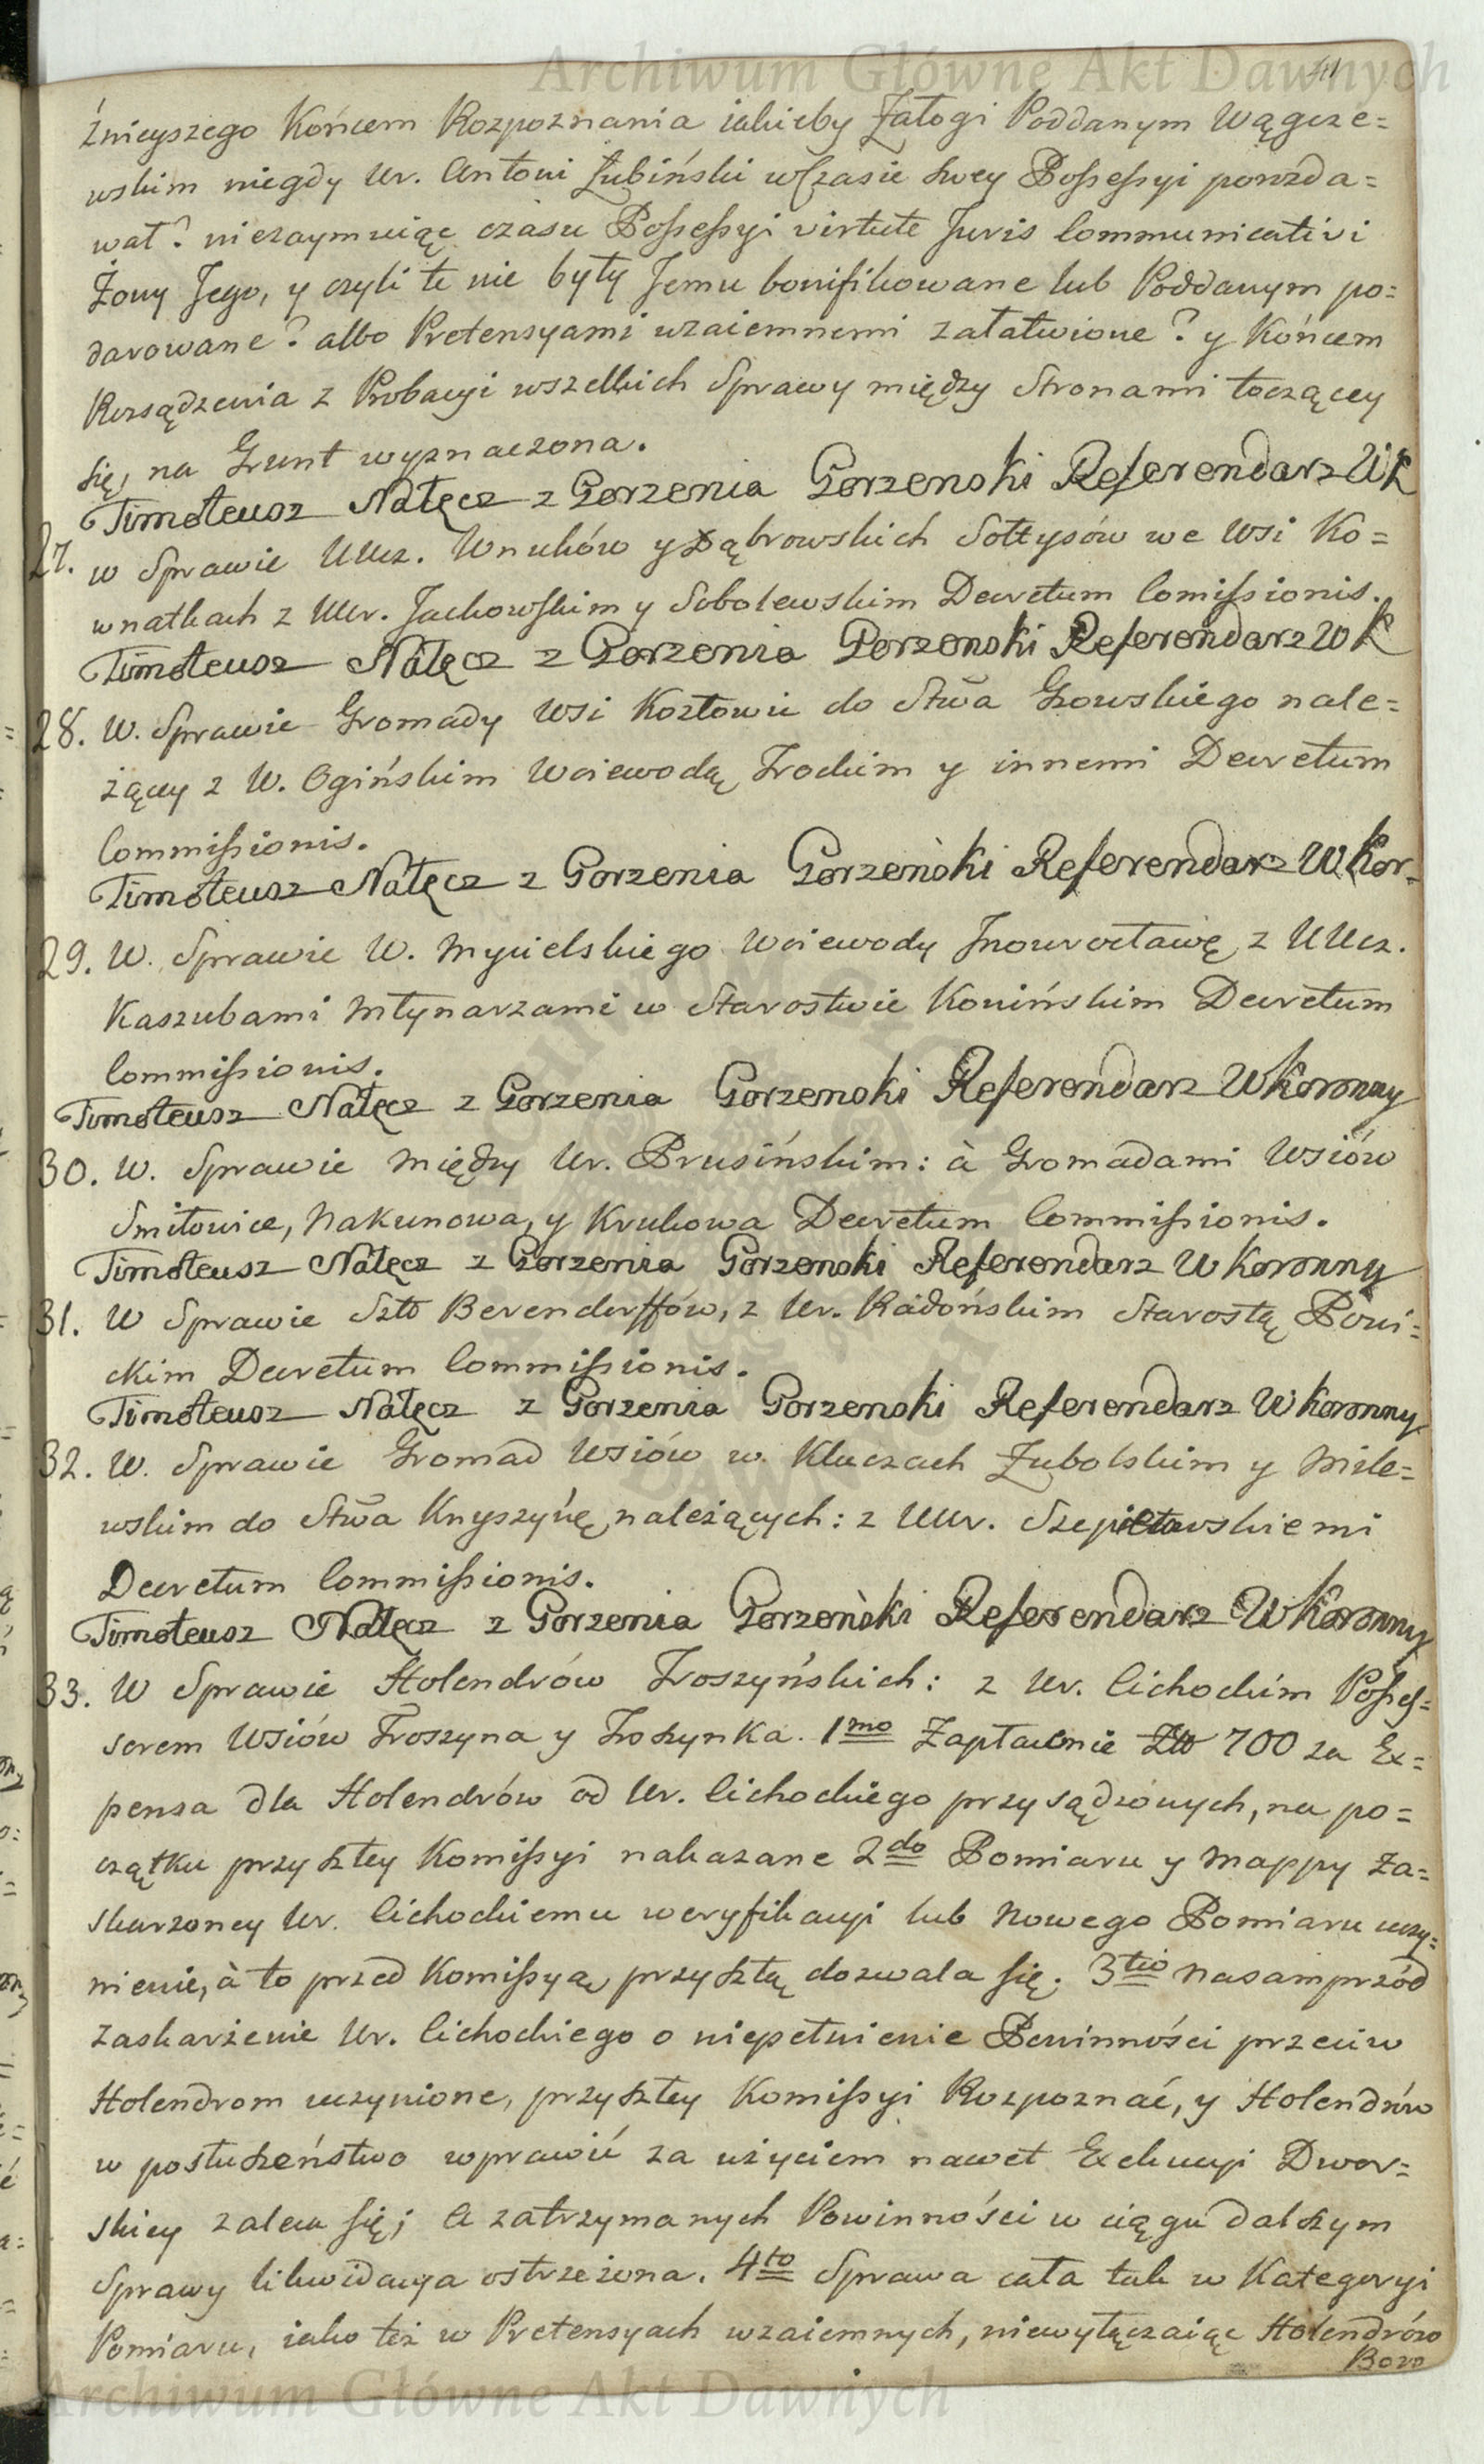 Archiwum Główne Akt Dawnych
źnieyszego Końcem Rozpoznania iakieby Załogi Poddanym Wągcze=
wskim niegdy Ur. Antoni Łubiński w Czasie swey Possessyi porozda=
wał? niezaymuiąc czasu Possessyi virtute Juris Communicativi
Żony Jego, y czyli te nie były Jemu bonifikowane lub Poddanym po=
darowane? albo Pretensyami wzaiemnemi załatwione? y Końcem
Rozsądzenia z Probacyi wszelkich Sprawy między Stronami toczącey
się, na Grunt wyznaczona.
Timoteusz Nałęcz z Gorzenia Gorzenski Referendarz W K
27. w Sprawie UUcz. Wnuków y Dąbrowskich Sołtysów we Wsi Ko=
wnatkach z UUr. Jachowskim y Sobolewskim Decretum Comissionis.
Timoteusz Nałęcz z Gorzenia Gorzenski Referendarz W K
28. W. Sprawie Gromady Wsi Kozłowu do Stwa Gzowskiego nale=
żący z W. Ogińskim Woiewodą Trockim y innemi Decretum
Commissionis.
Timoteusz Nałęcz z Gorzenia Gorzeński Referendarz W Kor-
29. W. Sprawie W. Mycielskiego Woiewody Inowrocławę z UUcz.
Kaszubami Młynarzami w Starostwie Konińskim Decretum
Commissionis.
Timoteusz Nałęcz z Gorzenia Gorzenski Referendarz W Koronny
30. W. Sprawie między Ur. Prusińskim: à Gromadami Wsiów
Smiłowice, Nakunowa, y Krukowa Decretum Commissionis.
Timoteusz Nałęcz z Gorzenia Gorzenski Referendarz W Koronny
31. W Sprawie Szło Berendorffów, z Ur. Radońskim Starostą Powi=
ckim Decretum Commissionis.
Timoteusz Nałęcz z Gorzenia Gorzenski Referendarz W Koronny
32. W. Sprawie Gromad Wsiów w Kluczach Zubolskim y Mile=
wskim do Stwa Knyszyńę należących: z UUr. Szepietowskiemi
Decretum Commissionis.
Timoteusz Nałęcz z Gorzenia Gorzeński Referendarz W Koronny
33. W Sprawie Holendrów Troszyńskich: z Ur. Cichockim Posses=
sorem Wsiów Troszyna y Troszynka. 1mo Zapłacenie Zło 700 za Ex=
pensa dla Holendrów od Ur. Cichockiego przysądzonych, na po=
czątku przyszłey Komissyi nakazane 2do Pomiaru y Mappy Za=
skarżoney Ur. Cichockiemu weryfikacyi lub Nowego Pomiaru uczy=
nienie, à to przed Komissyą przyszłą dozwala się. 3tio Nasamprzód
Zaskarżenie Ur. Cichockiego o niepełnienie Powinności przeciw
Holendrom uczynione, przyszłey Komissyi Rozpoznać, y Holendrów
w posłuszeństwo wprawić za użyciem nawet Exekucyi Dwor=
skiey zaleca się; A zatrzymanych Powinności w ciągu dalszym
Sprawy likwidacya ostrzeżona. 4to Sprawa cała tak w Kategoryi
Pomiaru, iako też w Pretensyach wzaiemnych, niewyłączaiąc Holendrów
Boro
Archiwum Główne Akt Dawnych